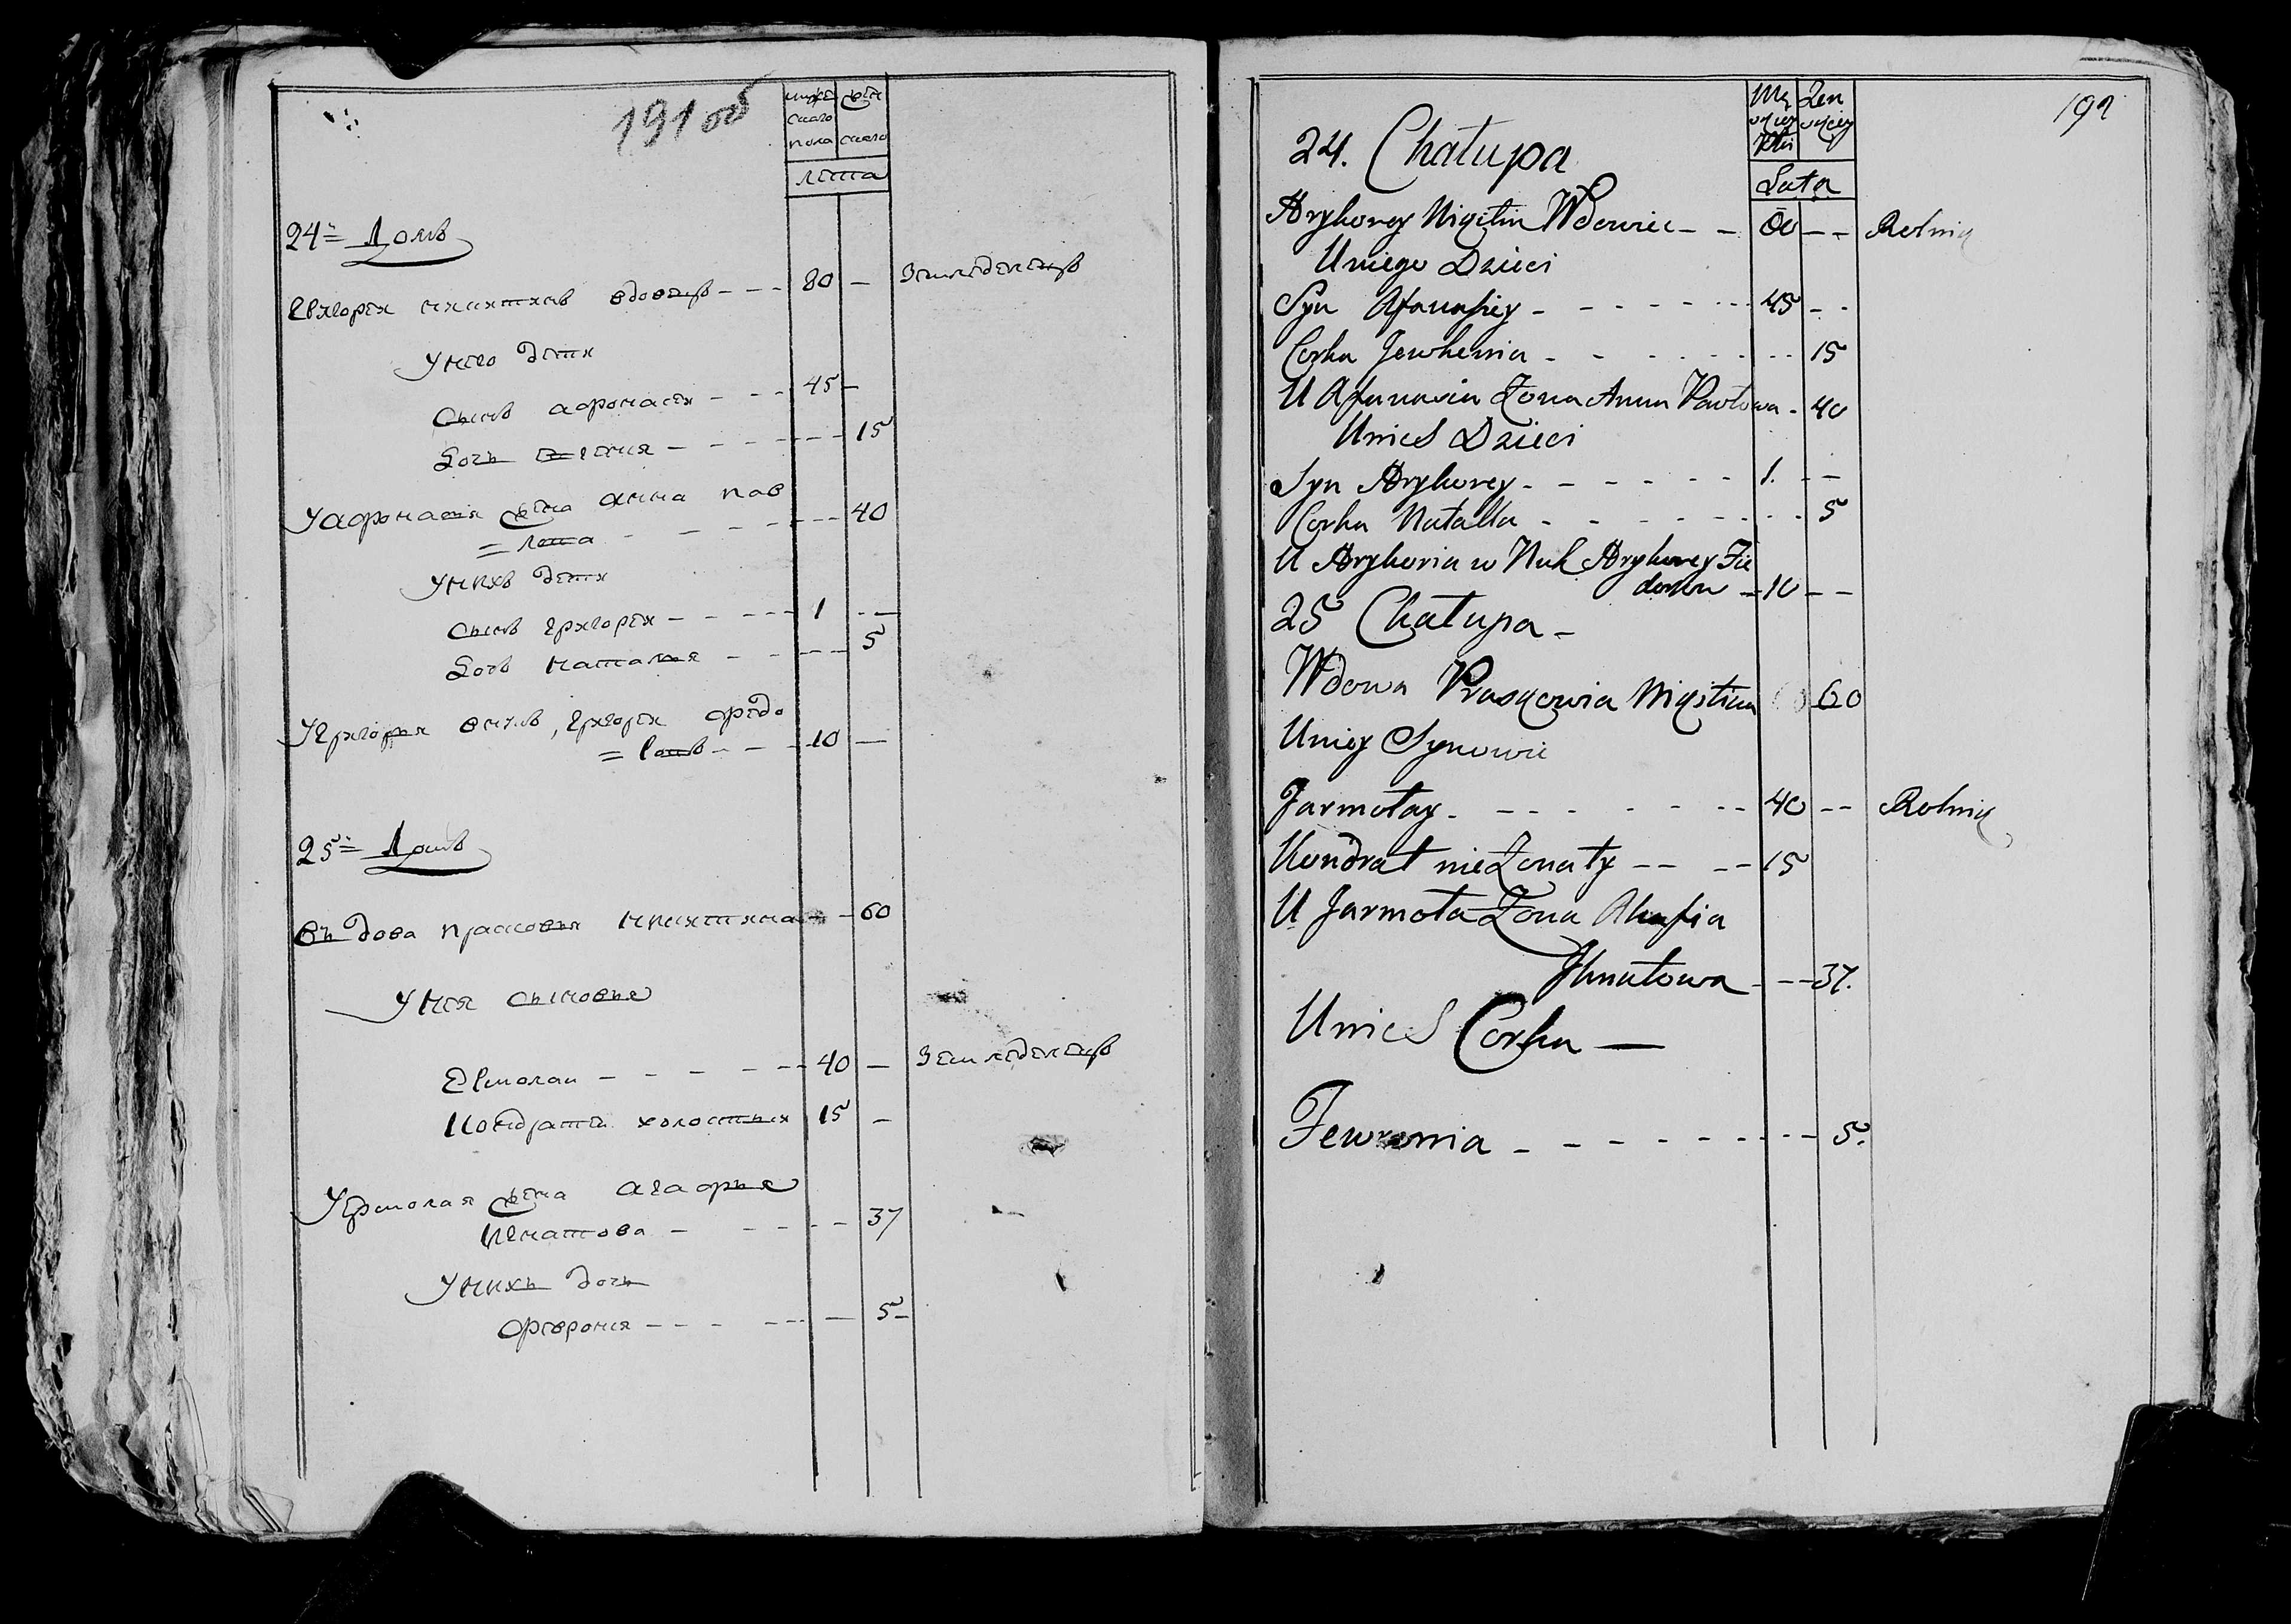 191 об
мужескаго пола
женскаго
лета
24й Домъ
Григорей никитинъ вдовецъ --- 80 — земледелецъ
У него дети
Сынъ афонасей --- 45 —
Дочь Евгения --- 15
У афонасия жена анна пав
= лова --- 40
У нихъ дети
Сынъ григорей --- 1 —
Дочь наталья --- 5
У григорья внукъ, григорей федо
= ровъ --- 10 —
25й Домъ
Въдова прасковья никитина — 60
У нея сыновья
Ермолай --- 40 — земледелецъ
Кондратей холостый 15 —
У ермолая жена агафья
Игнатова --- 37
У нихъ дочь
Феврония --- 5 —
192
Lata
24. Chałupa
Hryhorey Niqitin Wdowiec -- 80 -- Rolniq
Uniego Dzieci
Syn Afanasiey --- 45 --
Corka Jewhenia --- 15
U Afanasia Żona Anna Pawłowa - 40
Unich Dzieci
Syn Hryhorey --- 1. --
Corka Natalla --- 5
U Hryhoria wNuk Hryhorey Fie
dorow - 10 --
25 Chałupa -
Wdowa Prasqowia Niqitina 60
Uniey Synowie
Jarmołay --- 40 -- Rolniq
Kondrat nieŻonaty --- 15
U Jarmoła Żona Ahafia
Ihnatowa --- 37.
Unich Corka —
Fewronia --- 5.